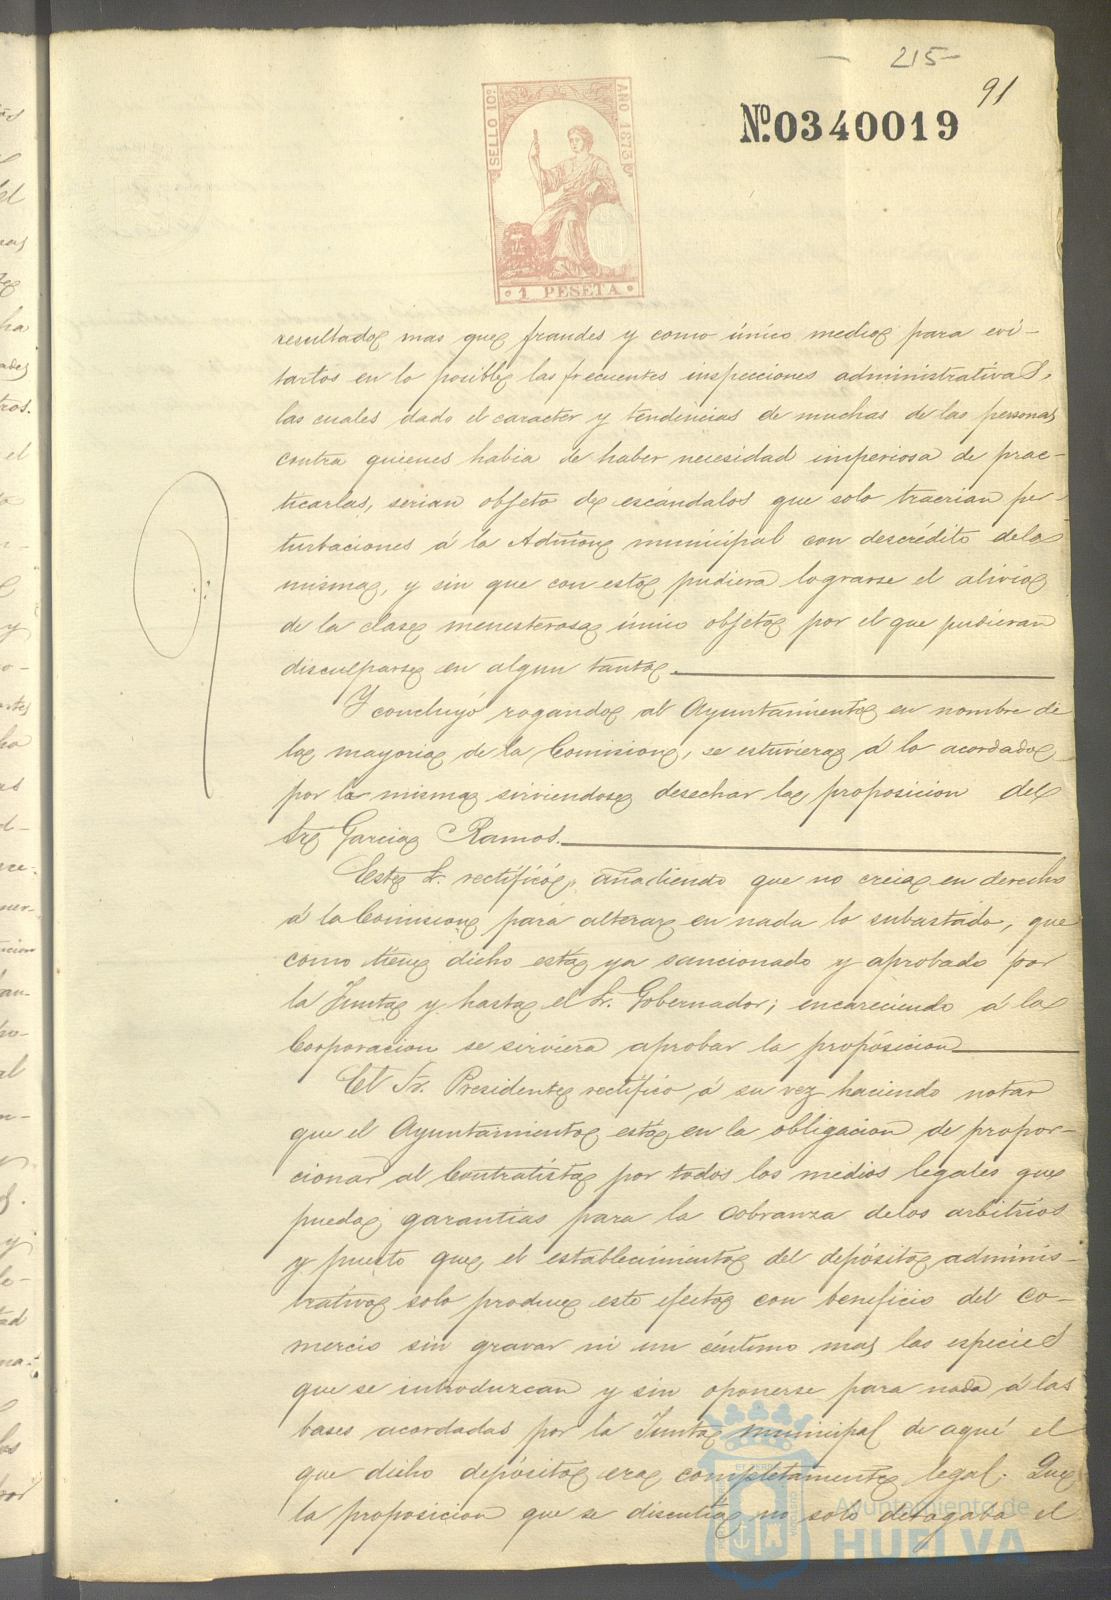 215-
91
Nº 0340019
SELLO 10º
AÑO 1873
1 PESETA
resultado mas que fraudes y como único medio para evi-
tarlos en lo posible las frecuentes inspecciones administrativas,
las cuales dado el caracter y tendencias de muchas de las personas
contra quienes habia de haber necesidad imperiosa de prac-
ticarlas, serian objeto de escándalos que solo traerian per-
turbaciones á la Admon municipal con descrédito dela
misma, y sin que con esto pudiera lograrse el alivio
de la clase menesterosa único objeto por el que pudieran
disculparse en algun tanto.
Y concluyó rogando al Ayuntamiento en nombre de
la mayoria de la Comision, se estuviera á lo acordado
por la misma sirviendose desechar la proposicion del
Sr Garcia Ramos.
Este Sr. rectificó, añadiendo que no creia en derecho
á la Comision para alterar en nada lo subastado, que
como tiene dicho está ya sancionado y aprobado por
la Junta y hasta el Sr. Gobernador; encareciendo á la
Corporacion se sirviera aprobar la proposicion
El Sr. Presidente rectificó á su vez haciendo notar
que el Ayuntamiento está en la obligacion de propor-
cionar al Contratista por todos los medios legales que
pueda, garantias para la cobranza delos arbitrios
y puesto que el establecimiento del depósito adminis-
trativo solo produce este efecto con beneficio del Co-
mercio sin gravar ni un céntimo mas las especies
que se introduzcan y sin oponerse para nada á las
bases acordadas por la Junta municipal de aqui el
que dicho depósito era completamente legal. Que
la proposicion que se discutia no solo derogaba el
Ayuntamiento de
HUELVA